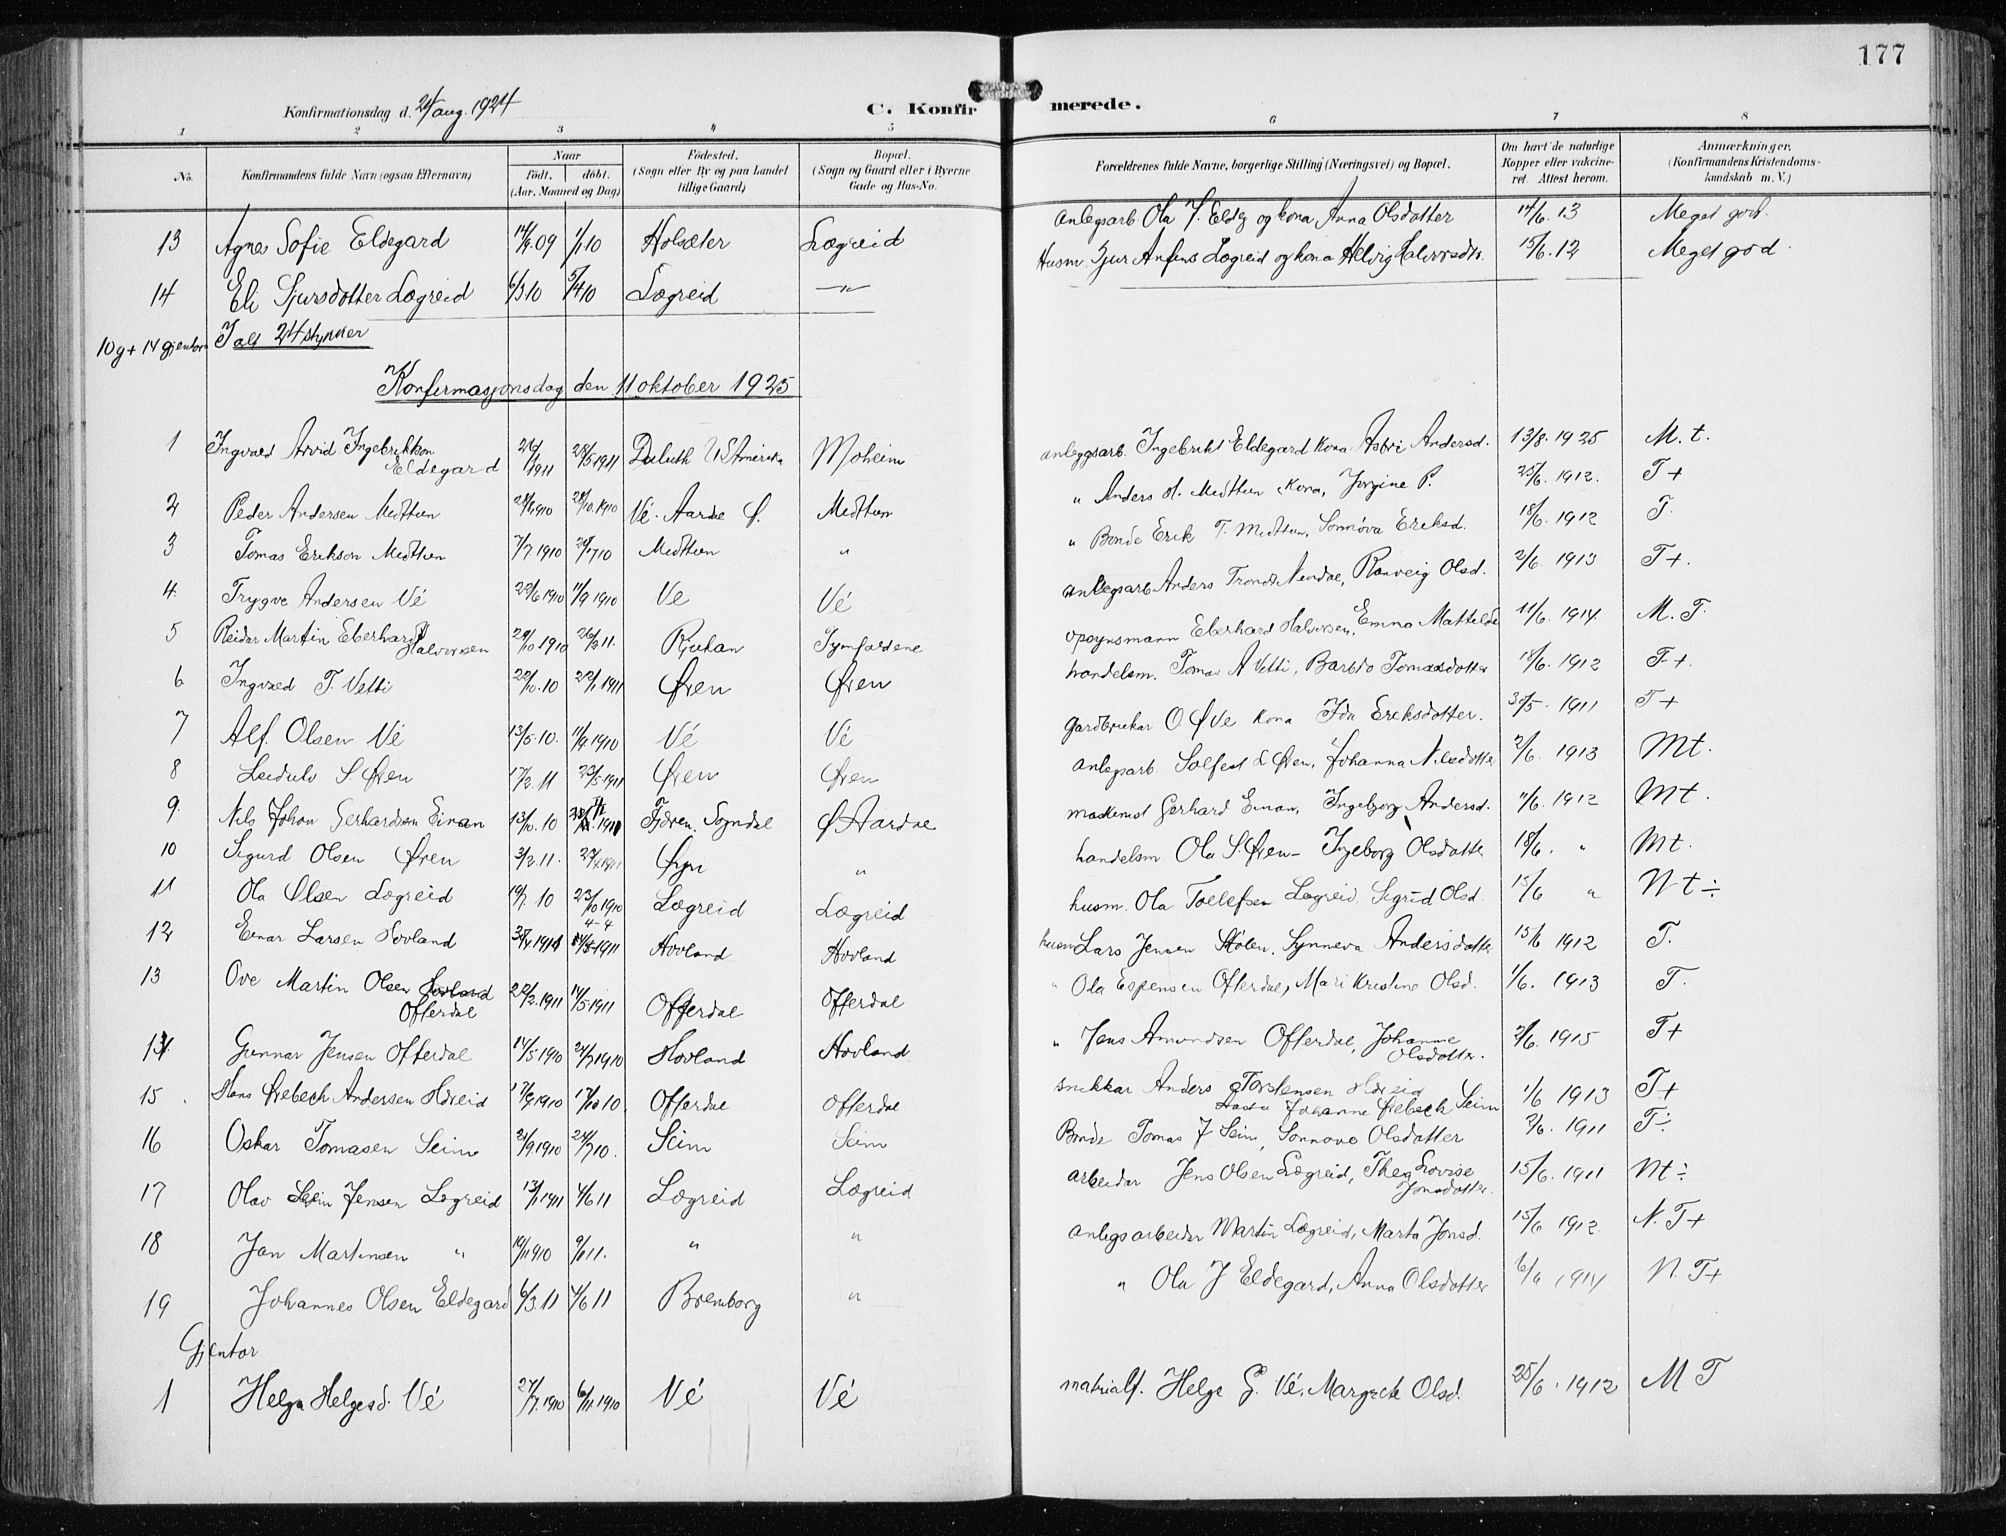 177
Konfirmationsdag d. 24/aug. 1924
C. Konfirmerede.
1 2 3 4 5 6 7 8
No. Konfirmandens fulde Navn (ogsaa Efternavn) Naar Født. døbt. (Aar, Maaned og Dag) Fødested. (Sogn eller By og paa Landet tillige Gaard) Bopæl. (Sogn og Gaard eller i Byerne Gade og Hus-No. Forældrenes fulde Navne, borgerlige Stilling (Næringsvei) og Bopæl. Om havt de naturlige Kopper eller vakcineret. Attest herom. Anmærkninger. (Konfirmandens Kristendomskundskab m. V.)
13 Agnes Sofie Eldegard 14/9.09 1/1.10 Holsæter Lægreid anlegsarb Ola J. Eldeg og kona Anna Olsdotter 14/6.13 Meget god.
14 Eli Sjursdotter Lægreid 6/3 10 5/4 10 Lægreid —"— Husm. Sjur Anfins Lægreid og kona Helvig Halvorsdtr. 15/6.12 Meget god.
10 g + 14 gjentor I alt 24 stykker
Konfirmasjonsdag den 11 oktober 1925
1 Ingvald Arvid Ingebriktson Eldegard 1911 28/5 1911 Duluth US Amerika Moheim anleggsarb. Ingebrikt Eldegard kona Astri Andersd. 13/8.1925 M.t.
2 Peder Andersen Midttun 28/10.1910 Vé. Aardal S. Midttun " Anders H. Midttun, kona, Jørgine P. 25/6.1912. T+
3 Tomas Erikson Midttun 7/7 1910 Midttun " " Bonde Erik T. Midttun, Sønnöva Eriksd. 18/6.1912 T.
4 Trygve Andersen Vé 22/6 1910 11/9 1910 Ve Vé anlegsarb Anders Trondt Nundal, Ranveig Olsd. 2/6.1913 T+.
5 Reidar Martin Eberhardt Halvorsen 29/10 1910 26/2 11. Rjukan Tymfoldene opsynsmann Eberhard Halvorsen, Emma Mathilde 11/6.1914. M.T.
6 Ingvald T. Vetti 22/10.10 22/1 1911 Øren Øren handelsm. Tomas A Vetti, Barbro Tomasdotter 18/6.1912 T+.
7 Alf. Olsen Vé 13/5.10. 11/9.1910 Vé Vé gardbrukar O Ø Ve kona Ida Eriksdotter. 30/5.1911 T+
8 Leidulv S. Øren 17/2.11 25/5 1911 Øren Øren anlegsarb. Solfest L Øren, Johanna Nilsdotter 2/6.1913 Mt.
9. Nils Johan Gerhardson Einan 13/10.10 Fjæren. Sogndal Ø Aardal maskinist Gerhard Einan, Ingebjørg Andersd. 11/6.1912 Mt.
10 Sigurd Olsen Øren 3/2.11. Øren " handelsm. Ola S. Øren – Ingeborg Olsdotter 18/6. " Mt.
11 Ola Olsen Lægreid 19/7 10 23/10 1910 Lægreid Lægreid husm. Ola Tollefsen Lægreid. Sigrid Olsd. 15/6 " Nt÷
12 Einar Larsen Hovland 4-4 Hovland Hovland husm Lars Jensen Stølen, Synneva Andersdotter 15/6 1912 T.
13 Ove Martin Olsen Hovland Offerdal 22/2.1911 14/5 1911 Offerdal Offerdal " Ola Espensen Offerdal, Mari Kristine Olsd. 1/6.1913 T.
14 Gunnar Jensen Offerdal 14/5 1910 24/7 1910 Hovland Hovland " Jens Amundsen Offerdal, Johanne Olsdotter. 2/6.1915 T+
15. Hans Ørebech Andersen Hæreid 17/10 10. Offerdal Offerdal snikkar Anders Torstensen Hæreid Johanne Ørebech Seim 1/6 1913 T+
16 Oskar Tomasen Seim 24/7 10. Seim Seim Bonde Tomas J Seim, Sonnove Olsdotter 2/6.1911 T÷
17 Olav Seim Jensen Lægreid 13/1 1911 4/6 11 Lægreid Lægreid arbeidar Jens Olsen Lægreid, Thea Lovise Jonsdotter. 15/6.1911 Nt÷
18 Jan Martinsen " 19/11 1910 9/1 11. " " anlegsarbeidar Martin Lægreid, Marta Jonsd. 15/6 1912. N.T+
19 Johannes Olsen Eldegard 6/3 11 4/6 11 Bremborg " " Ola J Eldegard, Anna Olsdotter 6/6 1914 N.T+
Gjentor
1 Helga Helgesd. Vé 27/7.1910 6/11.1910 Vé Vé materialf. Helge G. Vé, Margrete Olsd. 25/6.1912 M T